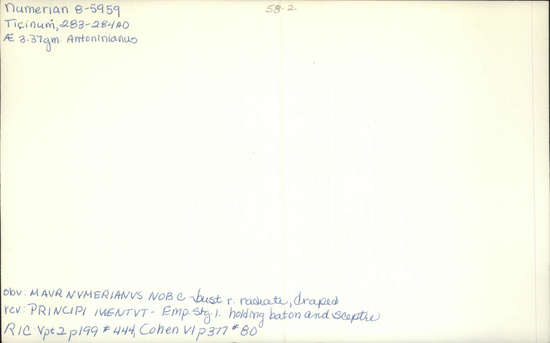 Numerian B-5959
58-2
Ticinum, 283-284 AD
Æ 3.37gm Antoninianus
obv: MAVR NVMERIANVS NOB C - bust r. radiate, draped
rev: PRINCIPI IVENTVT - Emp. stg l. holding baton and sceptre
RIC Vpt2 p199 #444, Cohen VI p377 #80